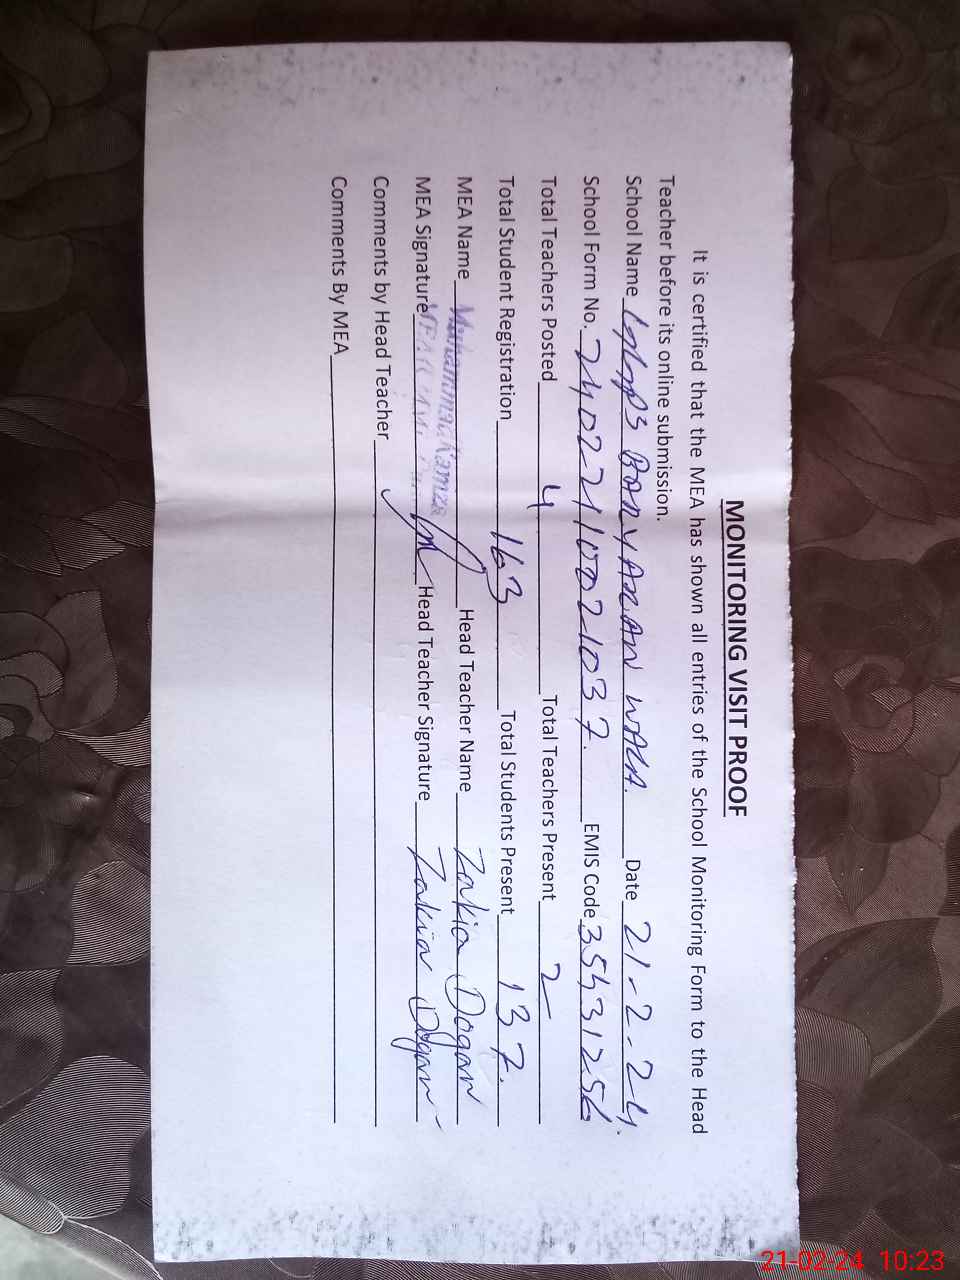 MONITORING VISIT PROOF
It is certified that the MEA has shown all entries of the School Monitoring Form to the Head
Teacher before its online submission.
School Name BARYARAN WALA. Date 21-2-24.
School Form No. 24022110021037. EMIS Code 35431256
Total Teachers Posted 4 Total Teachers Present 2
Total Student Registration 163 Total Students Present 137.
MEA Name Muhammad Hamza Head Teacher Name Zakia Dogar
MEA Signature MEA Head Teacher Signature Zakia Dogar
Comments by Head Teacher
Comments By MEA
21-02-24 10:23